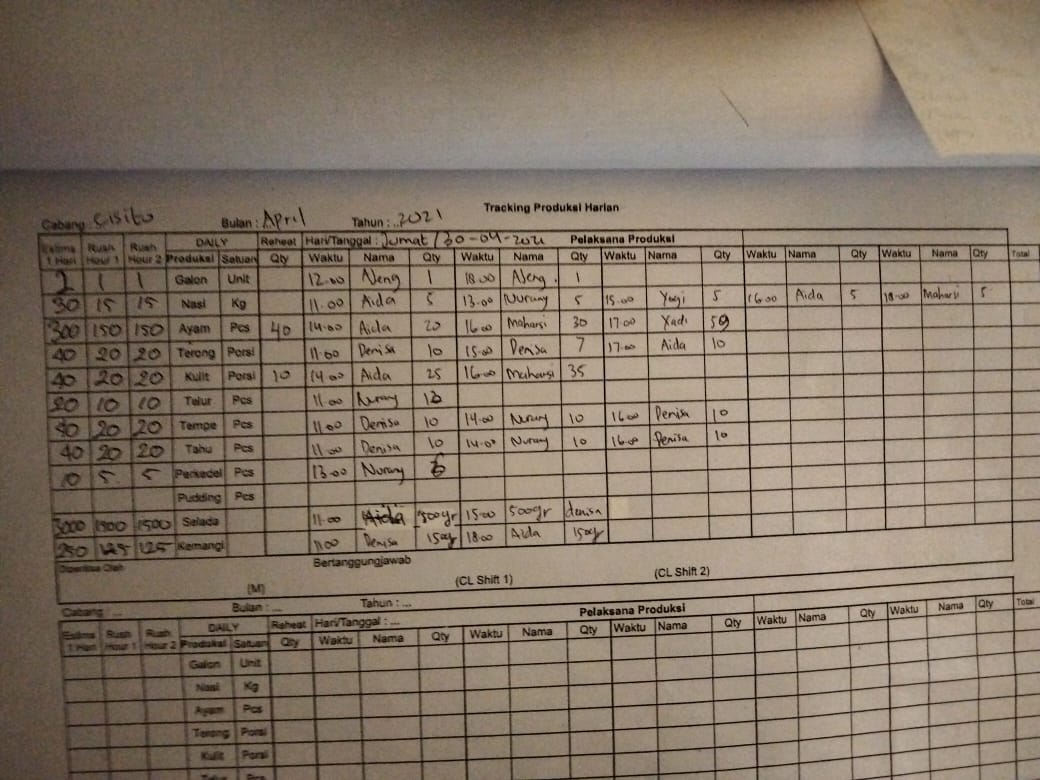 Tracking Produksi Harian
Cabang : Cisitu Bulan : April Tahun : ..2021
Estima 1 Hari Rush Hour 1 Rush Hour 2 DAILY Reheat Hari/Tanggal : Jumat / 30-04-2021 Pelaksana Produksi
Produksi Satuan Qty Waktu Nama Qty Waktu Nama Qty Waktu Nama Qty Waktu Nama Qty Waktu Nama Qty Total
2 1 1 Galon Unit 12.00 Neng 1 18.00 Neng 1
30 15 15 Nasi Kg 11.00 Aida 5 13.00 Nurany 5 15.00 Yogi 5 16.00 Aida 5 18.00 Maharsi 5
300 150 150 Ayam Pcs 40 14.00 Aida 20 16.00 Maharsi 30 17.00 Yadi 59
40 20 20 Terong Porsi 11.00 Denisa 10 15.00 Denisa 7 17.00 Aida 10
40 20 20 Kulit Porsi 10 14.00 Aida 25 16.00 Maharsi 35
20 10 10 Telur Pcs 11.00 Nurany
40 20 20 Tempe Pcs 11.00 Denisa 10 14.00 Nurany 10 16.00 Denisa 10
40 20 20 Tahu Pcs 11.00 Denisa 10 14.00 Nurany 10 16.00 Denisa 10
10 5 5 Perkedel Pcs 13.00 Nurany
Pudding Pcs
3000 1500 1500 Selada 11.00 Aida 15.00 500gr denisa
250 125 125 Kemangi 11.00 Denisa 150gr 18.00 Aida 150gr
Diperiksa Oleh Bertanggungjawab
(M) (CL Shift 1) (CL Shift 2)
Cabang : ... Bulan : ... Tahun : ...
Estima 1 Hari Rush Hour 1 Rush Hour 2 DAILY Reheat Hari/Tanggal : ... Pelaksana Produksi
Produksi Satuan Qty Waktu Nama Qty Waktu Nama Qty Waktu Nama Qty Waktu Nama Qty Waktu Nama Qty Total
Galon Unit
Nasi Kg
Ayam Pcs
Terong Porsi
Kulit Porsi
Telur Pcs